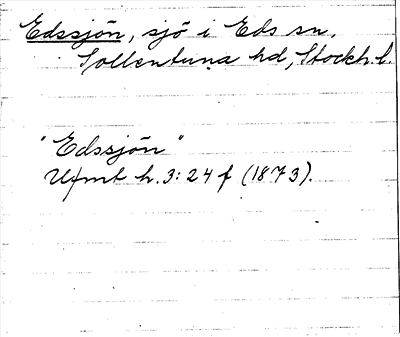 Edssjön, sjö i Eds sn,
Sollentuna hd, Stockh.l.
"Edssjön"
Ufmt h.3:24 f (1873).